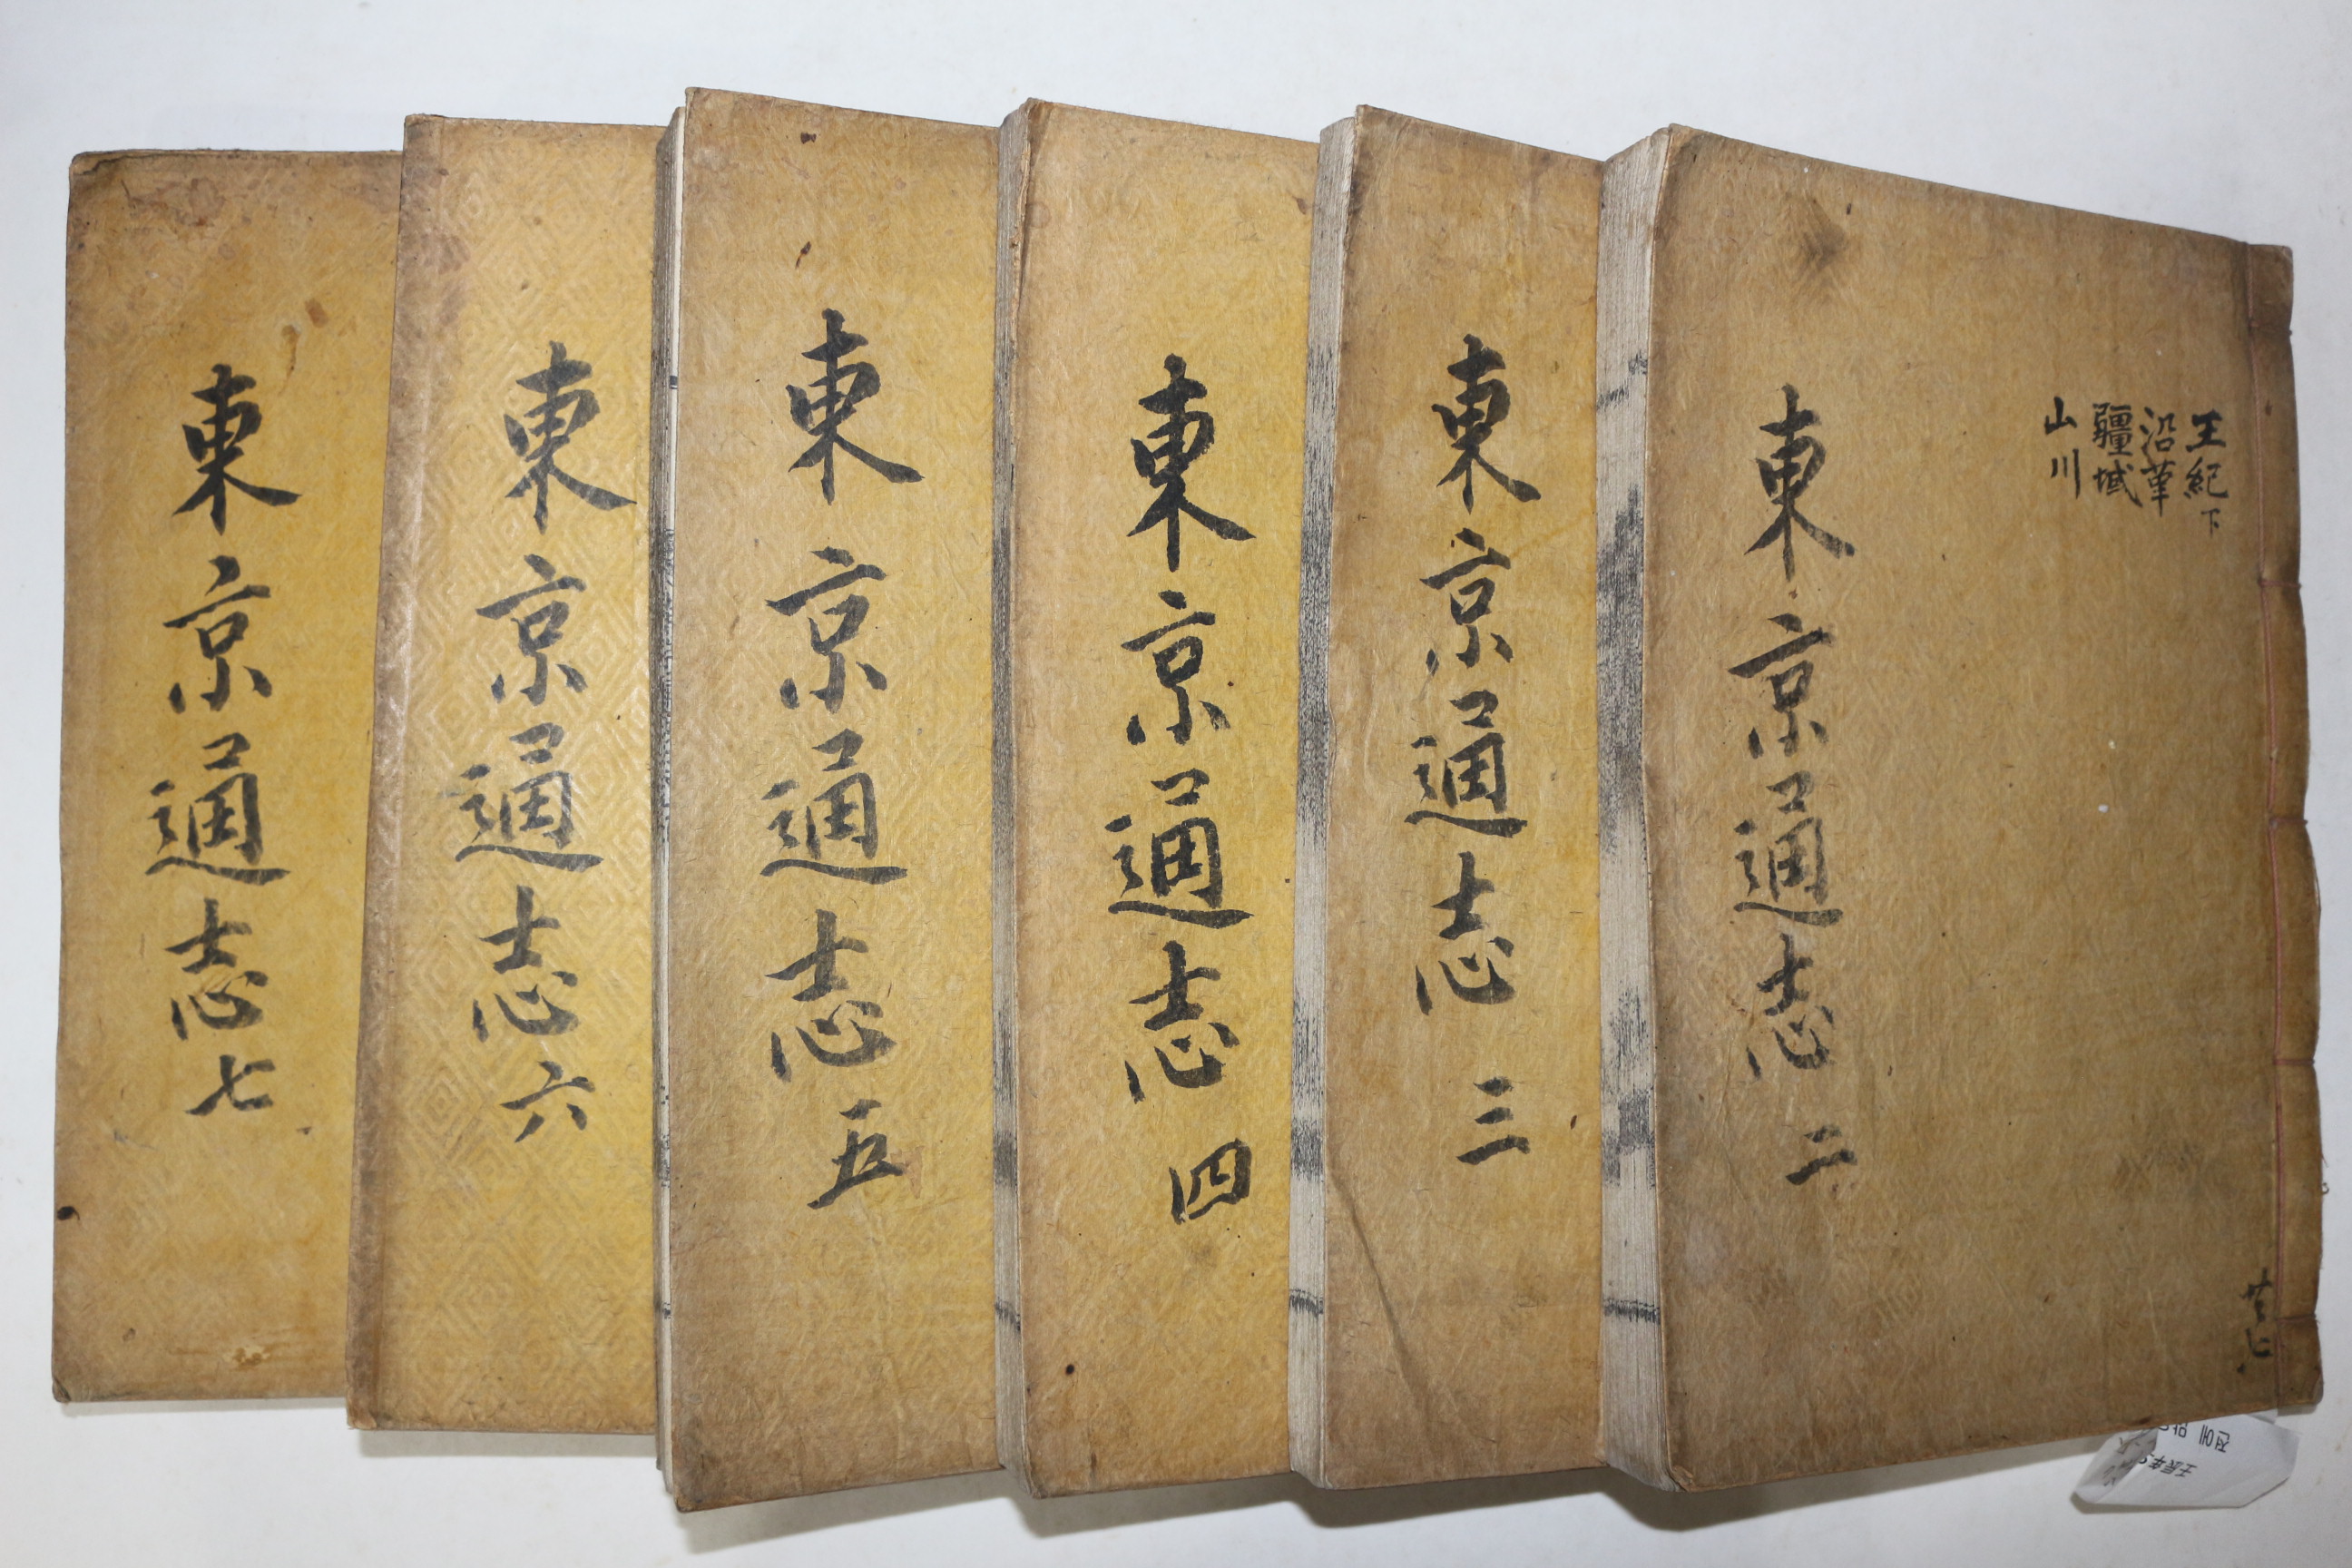 王紀下
沿革
疆域
山川
東京通志 二
東京通志 三
東京通志 四
東京通志 五
東京通志 六
東京通志 七
壬辰年
전에